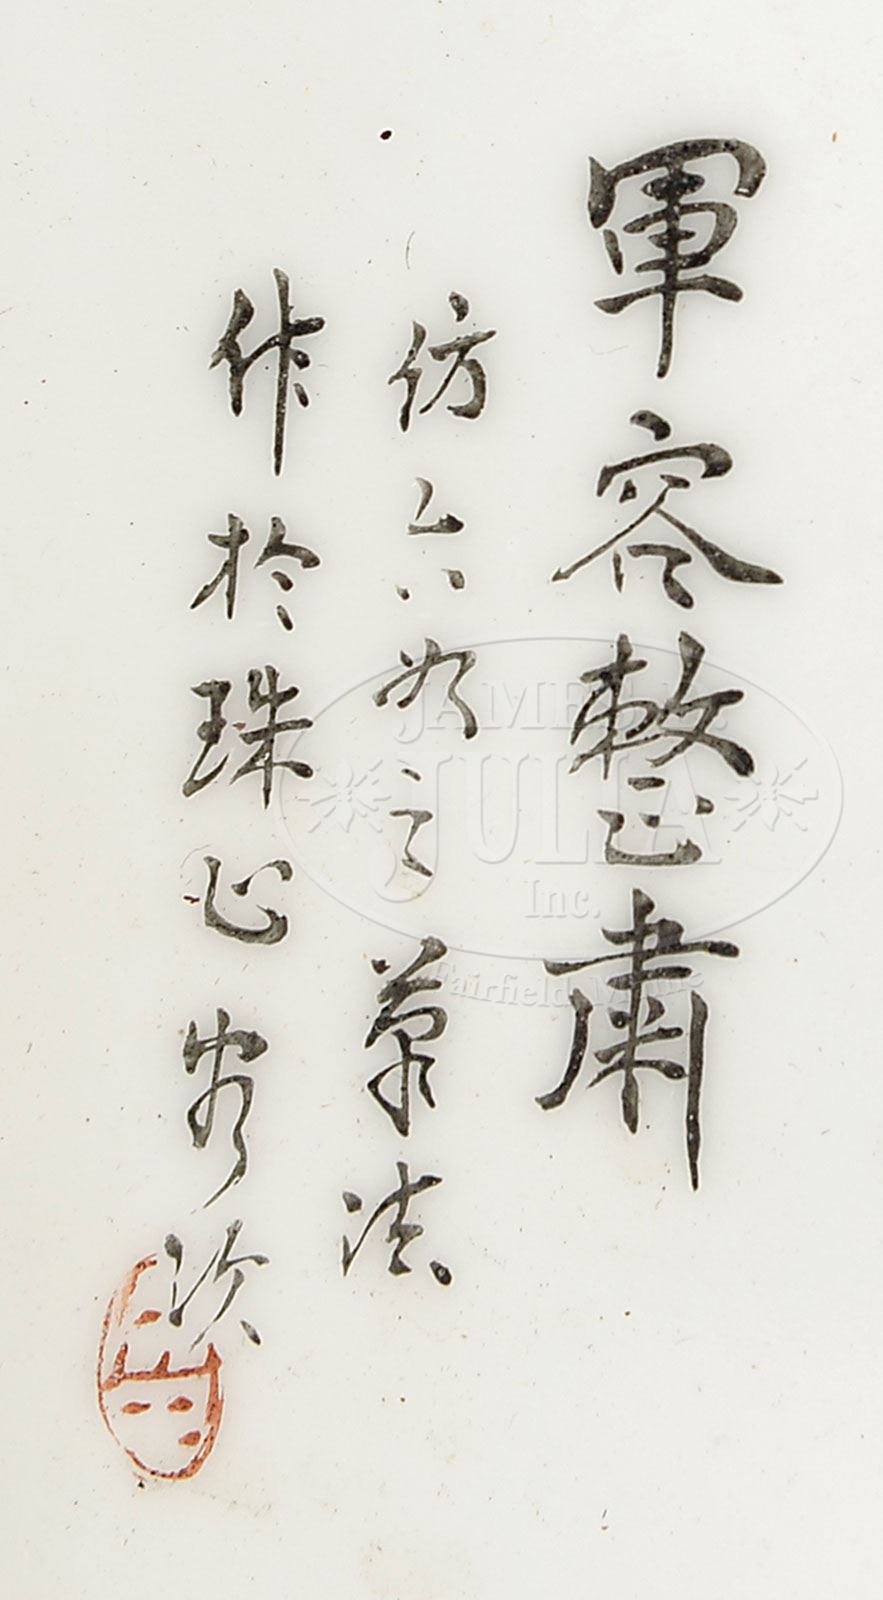 軍容整肅
仿六如之草法
作於珠山客次
JAMES D.
JULIA
Inc.
Fairfield, Maine